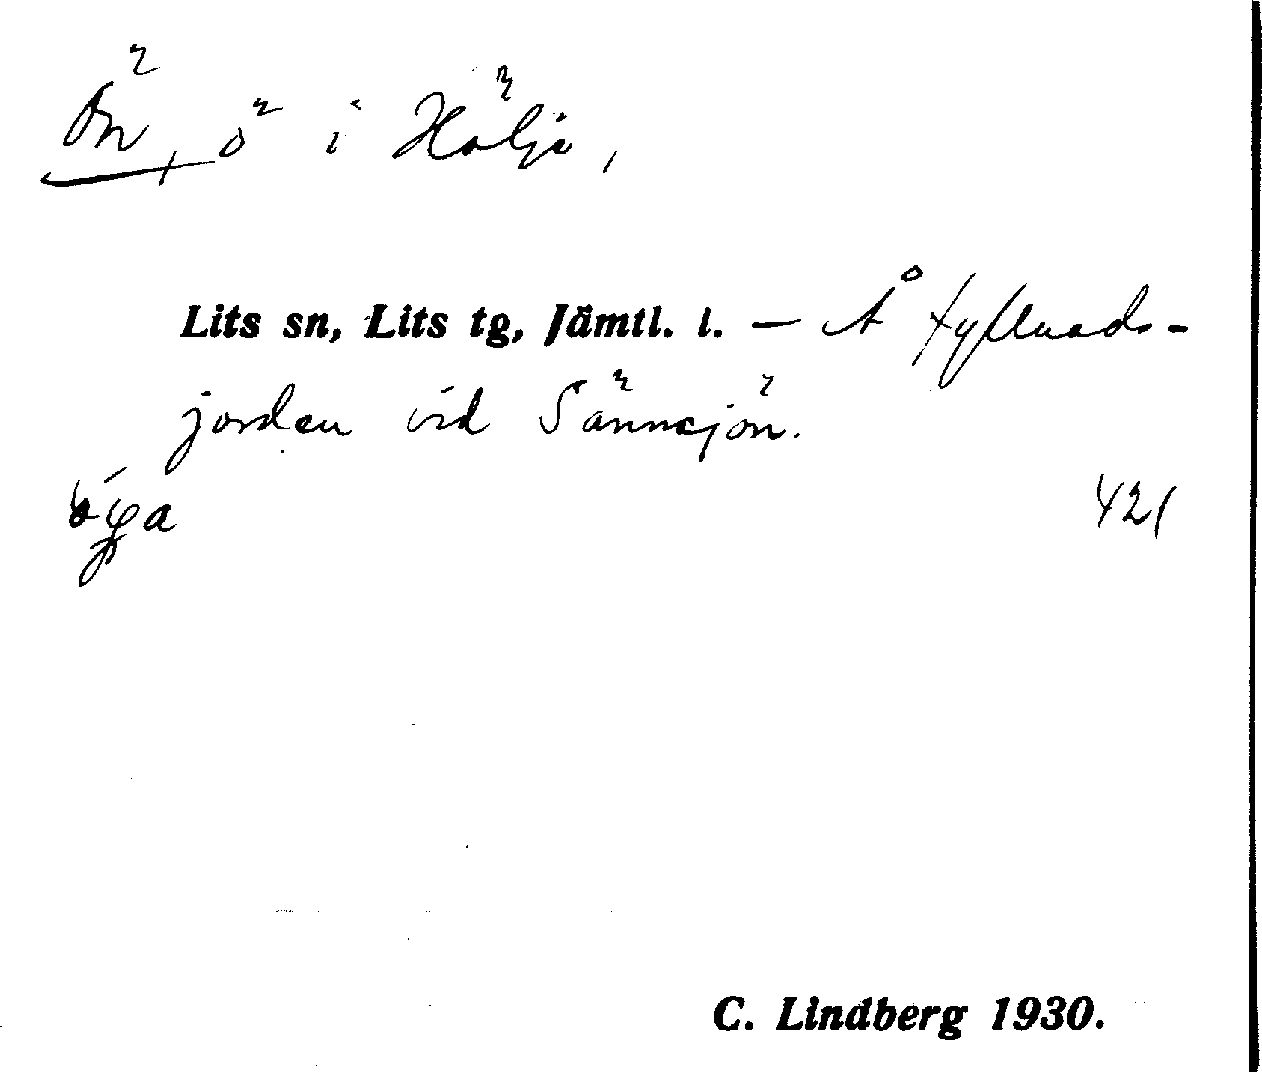 Ön, ö i Hölje,
Lits sn, Lits tg, Jämtl. l. — Å fyllnads-
jorden vid Sännsjön.
421
C. Lindberg 1930.